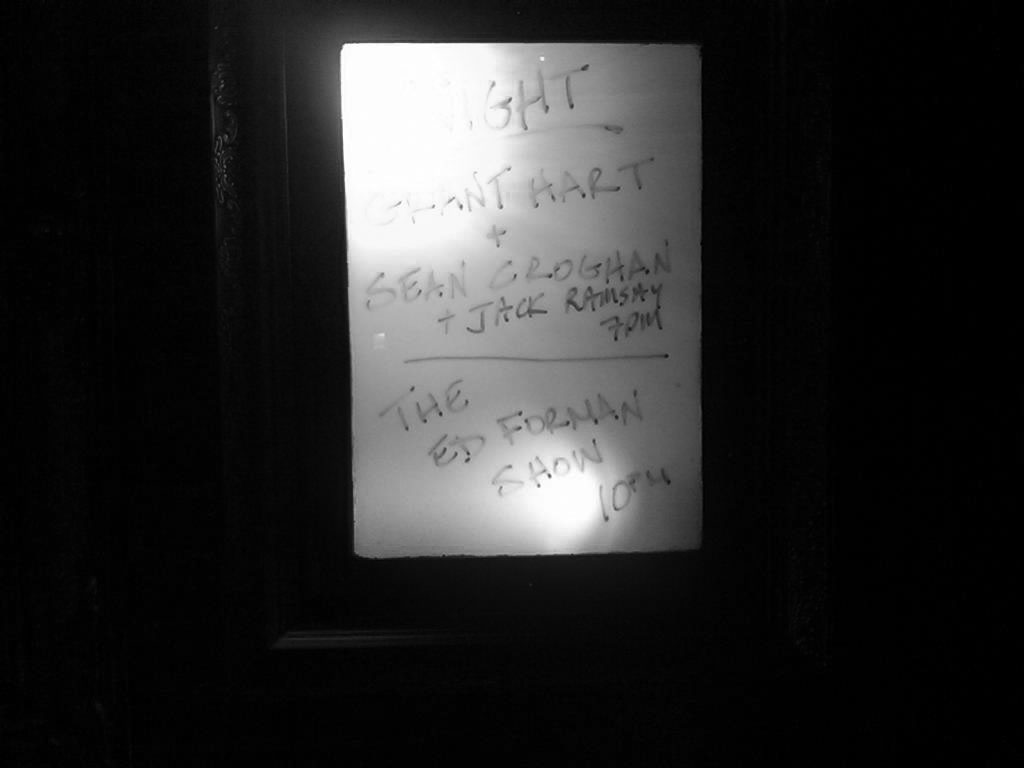 NIGHT
GRANT HART
+
SEAN CROGHAN
+ JACK RAMSAY
7PM
THE
ED FORMAN
SHOW
10PM